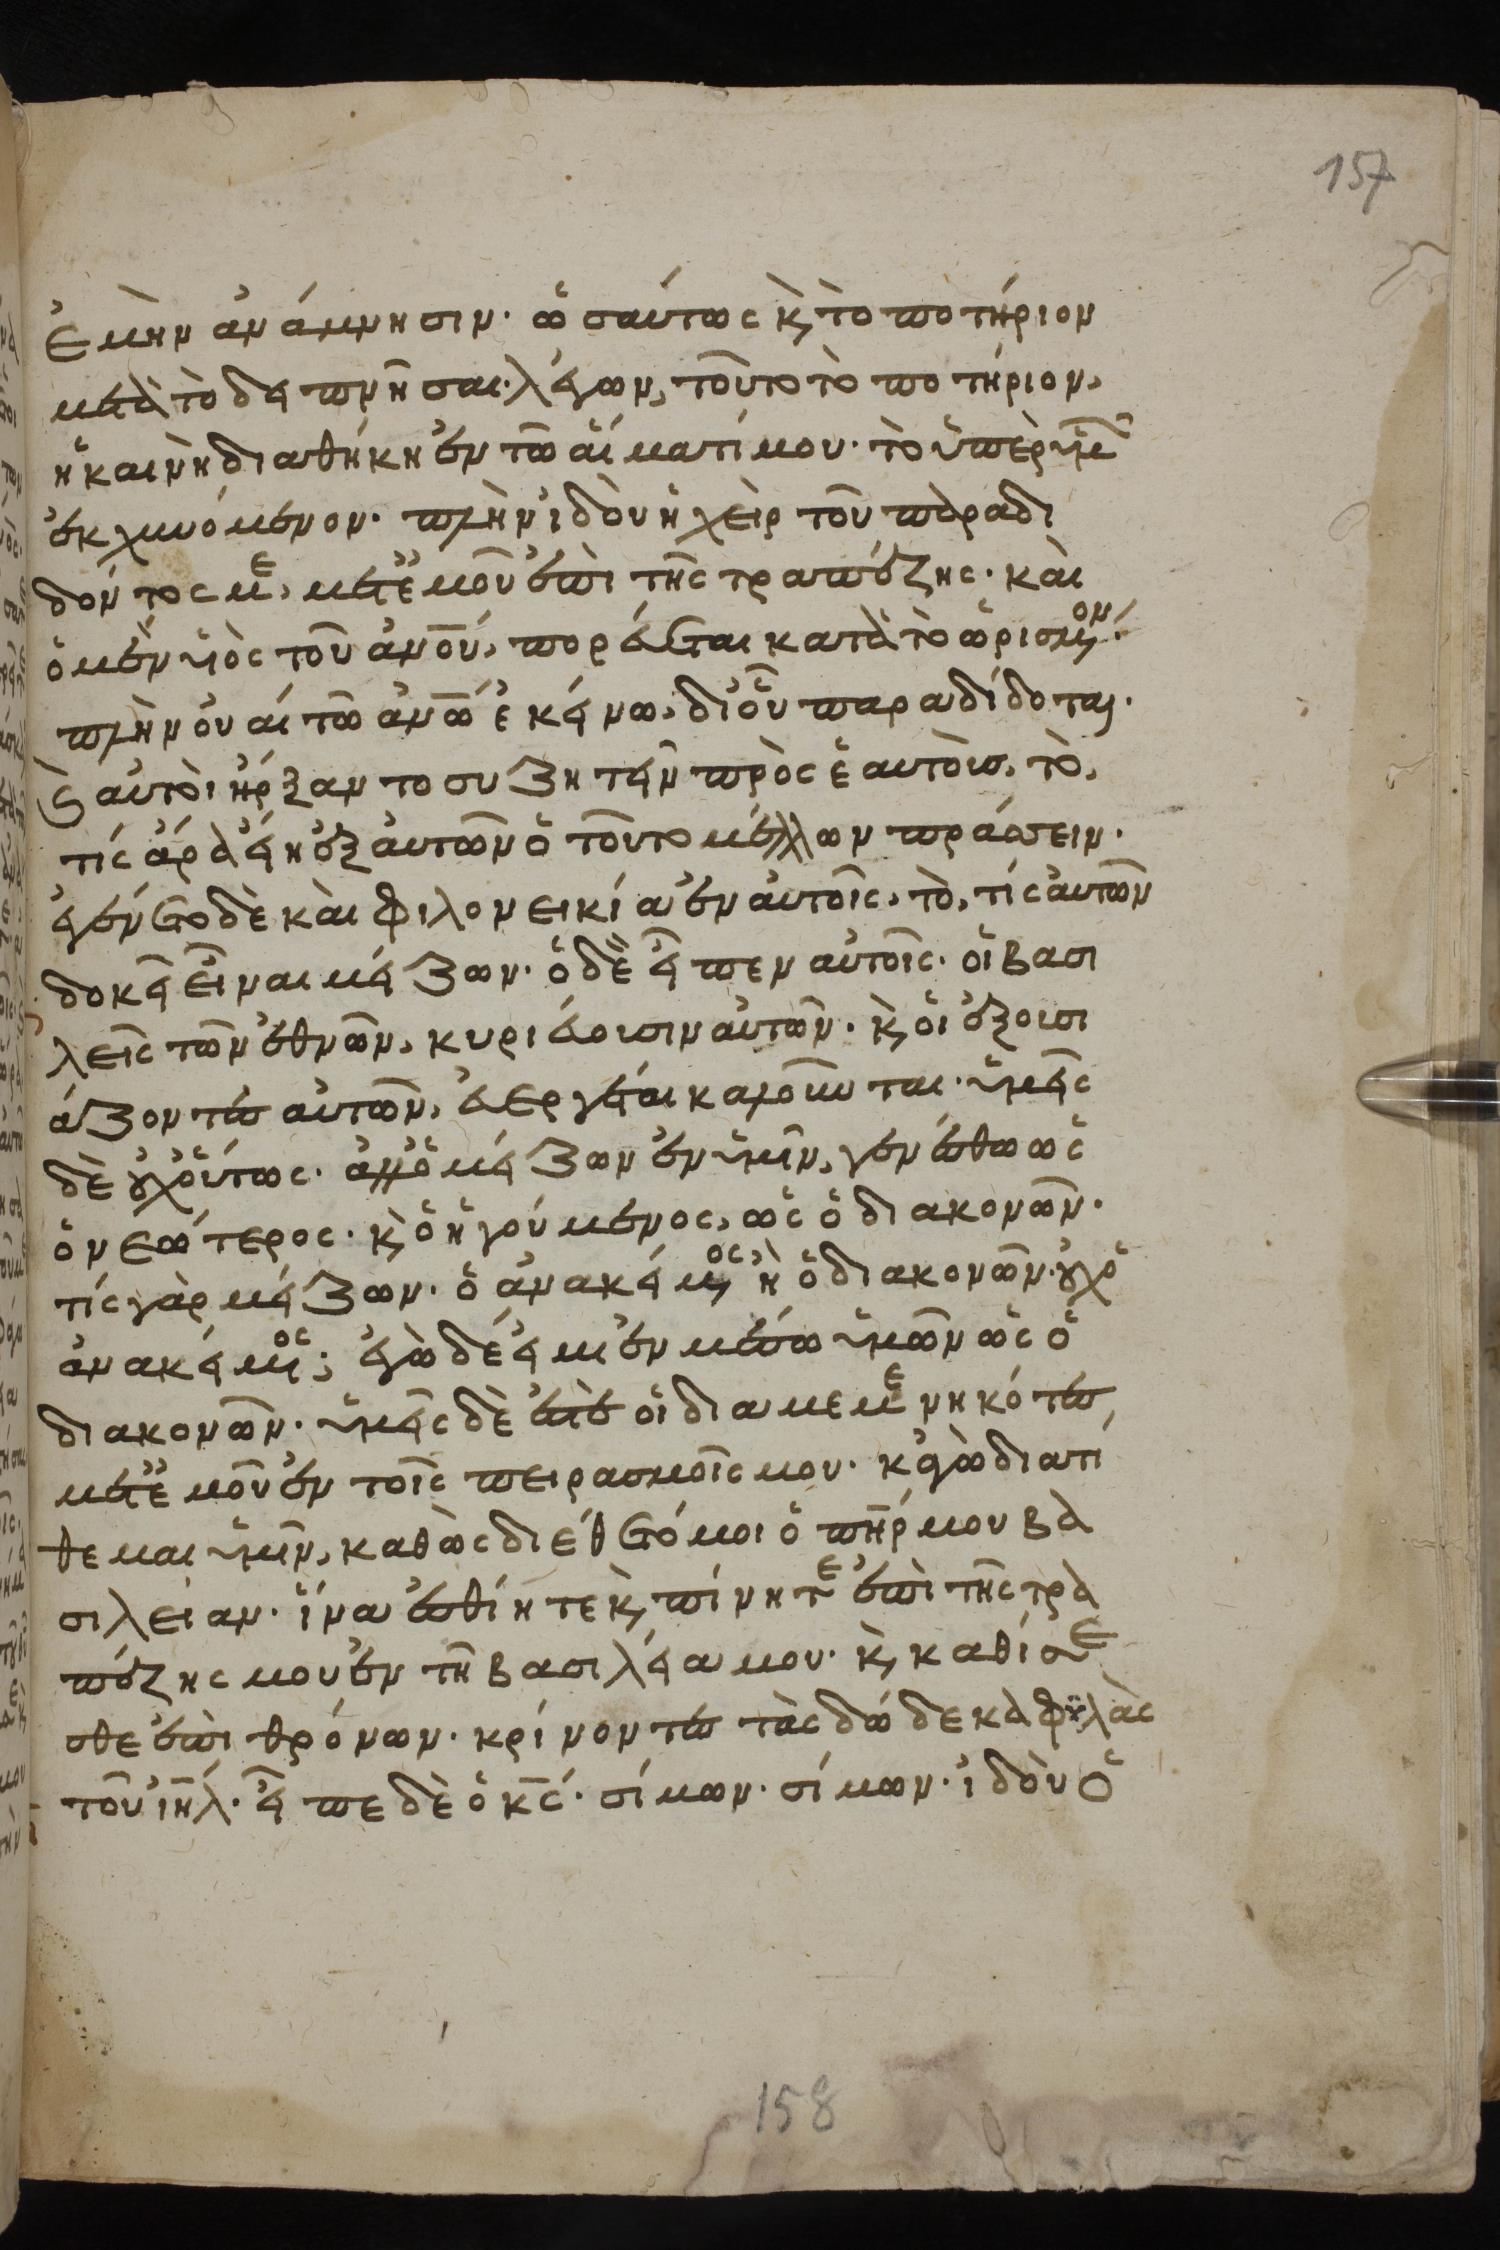 157
ἐμὴν ἀνάμνησιν· ὡσαύτως κ̀ τὸ ποτήριον
μετὰ τὸ δειπνῆσαι· λέγων, τοῦτο τὸ ποτήριον,
ἡ καινὴ διαθήκη ἐν τῶ αἵματί μου· τὸ ὑπὲρ ὑμῶν
ἐκχυνόμενον· πλὴν ἰδοὺ ἡ χεὶρ τοῦ παραδι
δόντος με, μετ ἐμοῦ ἐπὶ τῆς τραπέζης· καὶ
ὁ μὲν υἱὸς τοῦ ἀνου, πορεύεται κατὰ τὸ ὡρισμένον·
πλὴν οὐαὶ τῶ ἀνω ἐκείνω, δι οὗ παραδίδοται·
κ̀ αὐτοὶ ἤρξαντο συζητεῖν πρὸς ἑαυτοὺς, τὸ,
τίς ἄρα εἴη ἐξ αὐτῶν ὁ τοῦτο μέλλων πράσσειν·
ἐγένετο δὲ καὶ φιλονεικία ἐν αὐτοῖς, τὸ, τίς αὐτῶν
δοκεῖ εἶναι μείζων· ὁ δὲ εἶπεν αὐτοῖς· οἱ βασι
λεῖς τῶν ἐθνῶν, κυριεύουσιν αὐτῶν· κ̀ οἱ ἐξουσι
άζοντες αὐτῶν, εὐεργέται καλοῦνται· ὑμεῖς
δὲ οὐχ οὕτως· ἀλλ ὁ μείζων ἐν ὑμῖν, γενέσθω ὡς
ὁ νεώτερος· κ̀ ὁ ἡγούμενος, ὡς ὁ διακονῶν·
τίς γὰρ μείζων· ὁ ἀνακείμενος, ἢ ὁ διακονῶν· οὐχ ὁ
ἀνακείμενος; ἐγὼ δέ εἰμι ἐν μέσω ὑμῶν ὡς ὁ
διακονῶν· ὑμεῖς δὲ ἐστὲ οἱ διαμεμενηκότες
μετ ἐμοῦ ἐν τοῖς πειρασμοῖς μου· κἀγὼ διατί
θεμαι ὑμῖν, καθὼς διέθετό μοι ὁ πηρ μου βα
σιλείαν· ἵνα ἐσθίητε κ̀ πίνητε ἐπὶ τῆς τρα
πέζης μου ἐν τῆ βασιλεία μου· κ̀ καθίσε
σθε ἐπὶ θρόνων· κρίνοντες τὰς δώδεκα φυλὰς
τοῦ ιηλ· εἶπε δὲ ὁ κς· σίμων· σίμων· ἰδοὺ ὁ
158